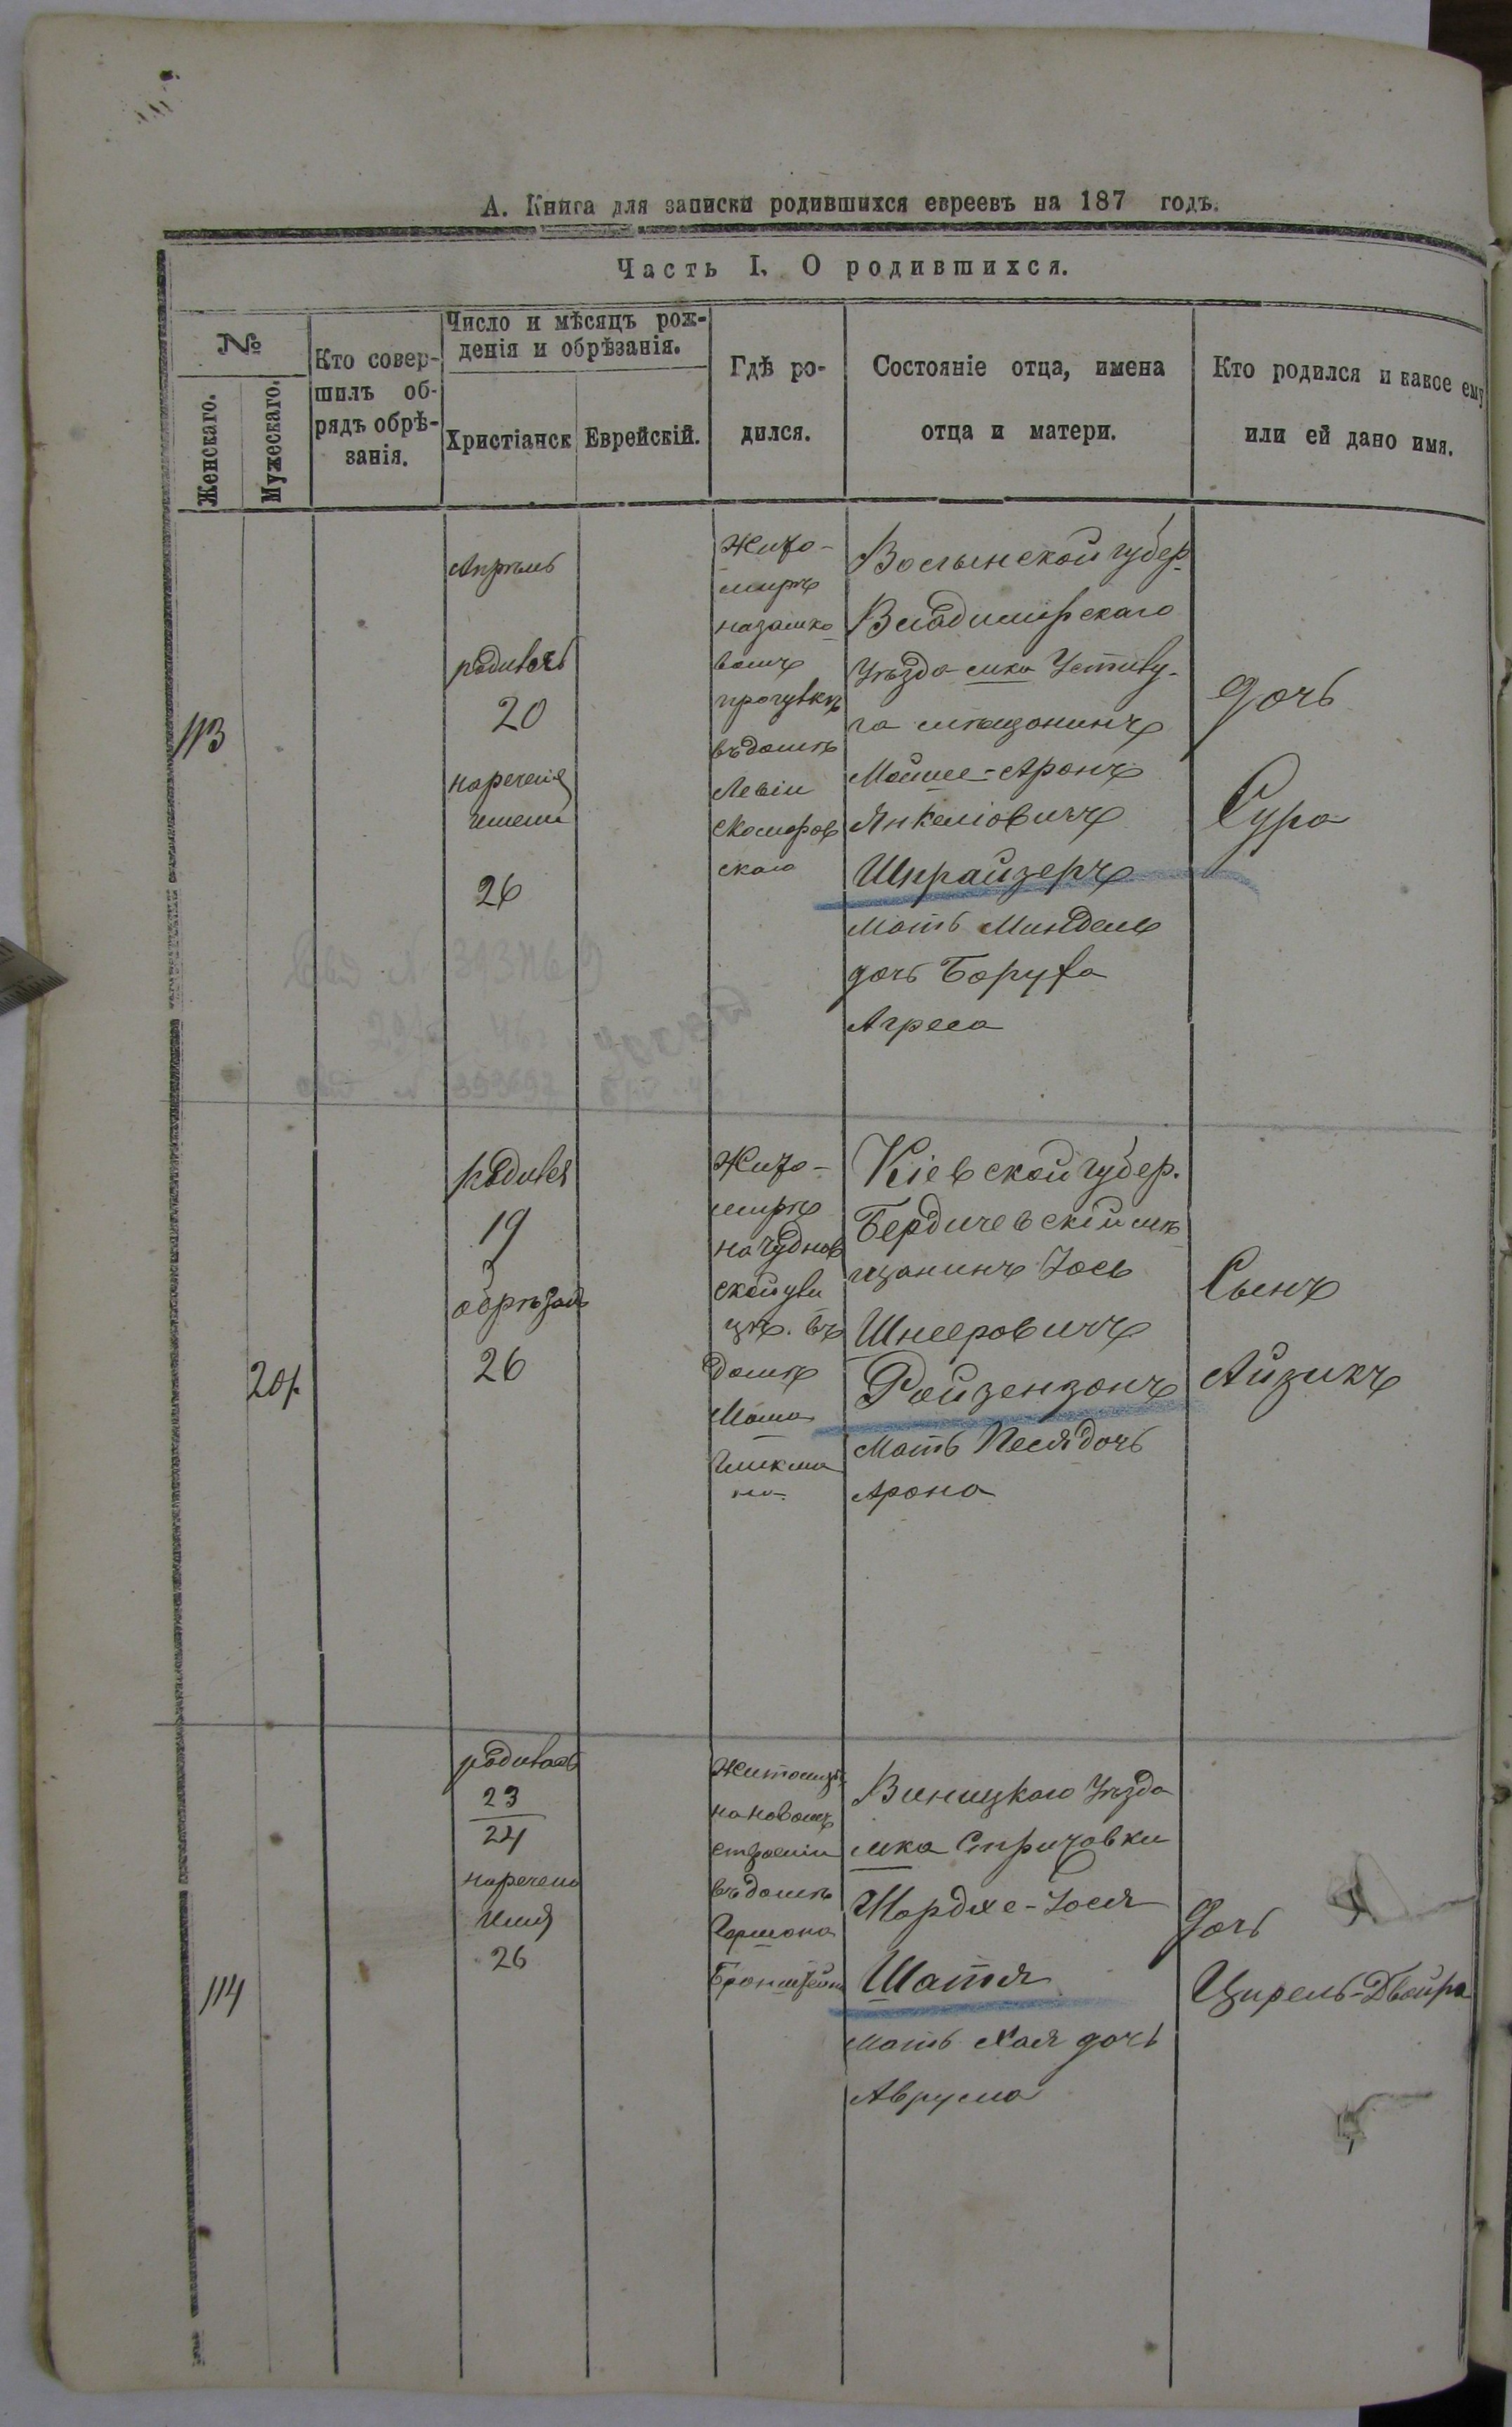 А. Книга для записки родившихся евреевъ на 187 годъ.
Часть I. О родившихся.
№
Женскаго.
Мужескаго.
Кто совер-
шилъ об-
рядъ обрѣ-
занія.
Число и мѣсяцъ рож-
денія и обрѣзанія.
Христіанск
Еврейскій.
Гдѣ ро-
дился.
Состояніе отца, имена
отца и матери.
Кто родился и какое ему
или ей дано имя.
113
Апрѣль
родилась
20
наречена
имени
26
Жито-
мирѣ
въ домѣ
Левіи
Скоморов
скаго
Волынской губер.
Владимірскаго
Уѣзда мка Устилу-
га мѣщанинъ
Мойше-Аронъ
Янкеліовичъ
Шпрайзеръ
Мать Миндель
дочь Боруха
Агреса
дочь
Сура
201
родился
19
обрѣзанъ
26
Жито-
мирѣ
на Чуднов
ской ули
цѣ. въ
домѣ
Гликма
на
Кіевской губер.
Бердичевскій мѣ
щанинъ Іось
Шнееровичъ
Ройзензонъ
Мать Песя дочь
Арона
Сынъ
Айзикъ
114
родилась
23
24
наречено
имя
26
Житомирѣ
на новомъ
строеніи
въ домѣ
Бронштейна
Виницкаго Уѣзда
мка Стрижовки
Мордхе-Іося
Шатя
Мать Хая дочь
Аврума
дочь
Цирель-Двойра